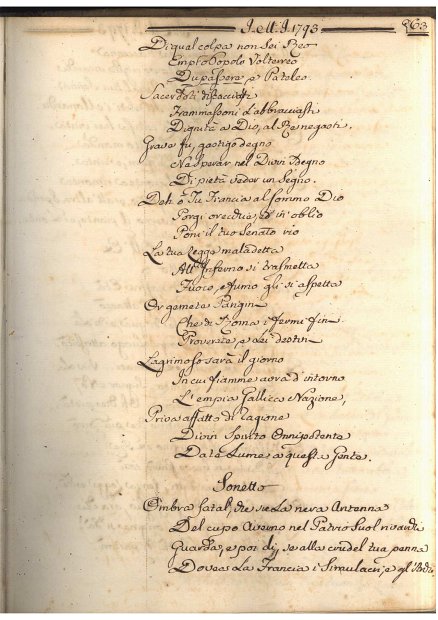 1793
263
Di qual colpa non sei Reo
Empio Popolo Volterreo
Sacerdoti discacciasti
Frammassoni l'abbracciasti
Dignità a Dio, al Re negasti.
Grave fu, gastigo degno
Nà sperar nel Divin Sdegno
Di pietà veder un Segno.
Deh ò Tu Francia al sommo Dio
Porgi orecchie, ed in oblio
Poni il tuo Senato rio
La tua Legge maladetta
All'Inferno si trasmetta
Fuoco, e fumo gli si aspetta
Or gemete
Che di Roma i fermi
Proverete, e dei destin
Lagrimoso sarà il giorno
In cui fiamme avrà d'intorno
L'empia Gallica Nazione,
Priva affatto di ragione
Divin Spirto Onnipotente
Date Lume a questa Gente.
Sonetto
Ombra fatal, che sè La nera Antenna
Del cupo Averno nel Patrio Suol
Guarda, e poi dì, se alla crudel tua penna
Dovea La Francia i Simulacri, e gl'